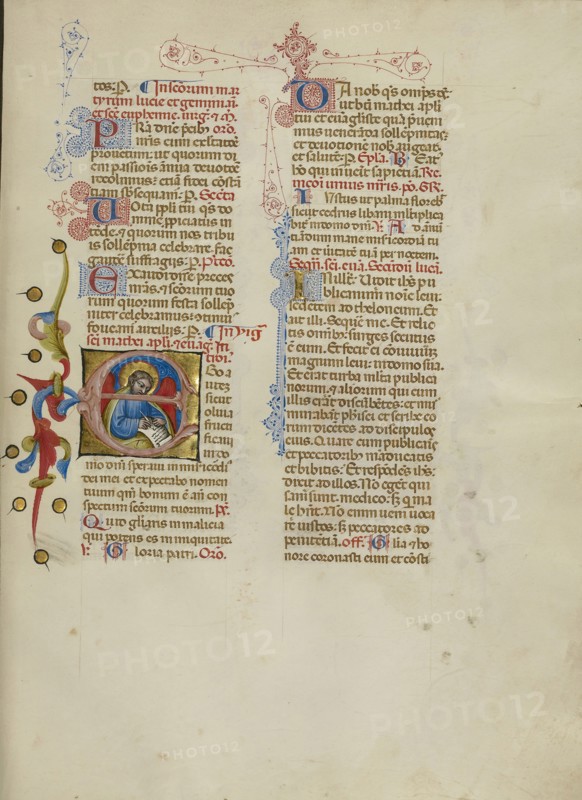 tos. P. In scorum mar
tyrum lucie et geminiani
et sce eufemie. uirg. et M.
Presta dne pcib oro.
nris cum exultatione
prouectum: ut quorum di
em passionis annua deuotione
recolimus: etiam fidei constantiam
subsequamur. P. Secreta
Uota ppli tui qs do
mine. propiciatus in
tende. et quorum nos tribuis
sollepnia celebrare. fac
gaudere suffragiis. P. Pco.
Exaudi dne preces
nras. et scorum tuo
rum quorum festa sollep
niter celebramus: continuis
foueamur auxiliis. P. In uigilia
sci mathei apli. et euag. In
troi.
Ego a
utez
sicut
oliua
fructi
ficaui
in do
mo dni speraui in misericordia
dei mei et expectabo nomen
tuum qm bonum est ante con
spectum scorum tuorum. Ps.
Quid gliaris in malicia
qui potens es in iniquitate.
V. Gloria patri. Oro.
Da nob qs omps ds
ut beati mathei apli
tui et euagliste qua preuenimus
ueneranda sollepnitas:
et deuotionem nob augeat:
et salutem. P. Epla. Beatus
homo qui inuenit sapientiam. Re
Iustus ut palma florebit
sicut cedrus libani multiplica
bitur in domo dni. V. Ad annun
tiandum mane misericordiam tu
am et ueritatem tuam per noctem.
Sequn. sci. eua. Secundum lucam.
In illo tempore. Uidit ihs pu
blicanum noie leui:
sedentem ad theloneum. Et
ait illi. Sequere me. Et relic
tis omnibus: surges secutus
est eum. Et fecit ei conuiuium
magnum leui: in domo sua.
Et erat turba multa publica
norum. et aliorum qui cum
illis erant discumbentes: et mur
murabant pharisei et scribe eo
rum dicentes ad discipulos
eius. Quare cum publicanis
et peccatoribus manducatis
et bibitis: Et respondens ihs:
dixit ad illos. No egent qui
sani sunt. medico: sed qui ma
le habent. No enim ueni uoca
re iustos: sed peccatores ad
penitentiam. Off. Glia et ho
nore coronasti eum et consti
PHOTO12